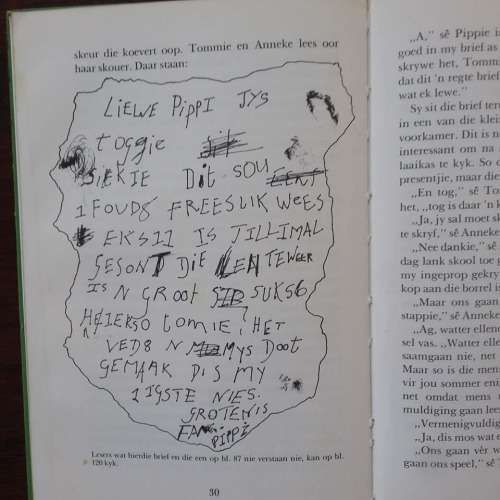 skeur die koevert oop. Tommie en Anneke lees oor
haar skouer. Daar staan:
LIEWE PIPPI JYS
toggie
SIEKIE Dit SOU
1 FOUD8 FREESLIK WEES
EKS11 IS TILLIMAL
GESONT DIE LENTEWEER
IS N GROOT SUKS6
TOMIE HET
VED8 N MYS DOOT
GEMAAK DIS MY
1IGSTE NIES.
GROTENIS
FAN PIPPI
Lesers wat hierdie brief en die een op bl. 87 nie verstaan nie, kan op bl.
120 kyk.
30
„A,” sê Pippie
goed in my brief as
skrywe het, Tomm
dat dit 'n regte brief
wat ek lewe.”
Sy sit die brief ter
in een van die klei
voorkamer. Dit is n
interessant om na
laaikas te kyk. So
presentjie, maar die
„En tog,” sê To
het, „tog is daar 'n k
„Ja, jy sal moet s
te skryf,” sê Anneke
„Nee dankie,” sê
dag lank skool toe g
my ingeprop gekry
kop aan die borrel is
„Maar ons gaan
stappie,” sê Anneke
„Ag, watter ellen
sel vas. „Watter ellen
saamgaan nie, net
Maar so is die mens
vir jou sommer en
net omdat mens
muldiging gaan leer
„Vermenigvuldig
„Ja, dis mos wat
„Ons gaan vèr w
gaan ons speel,” sê